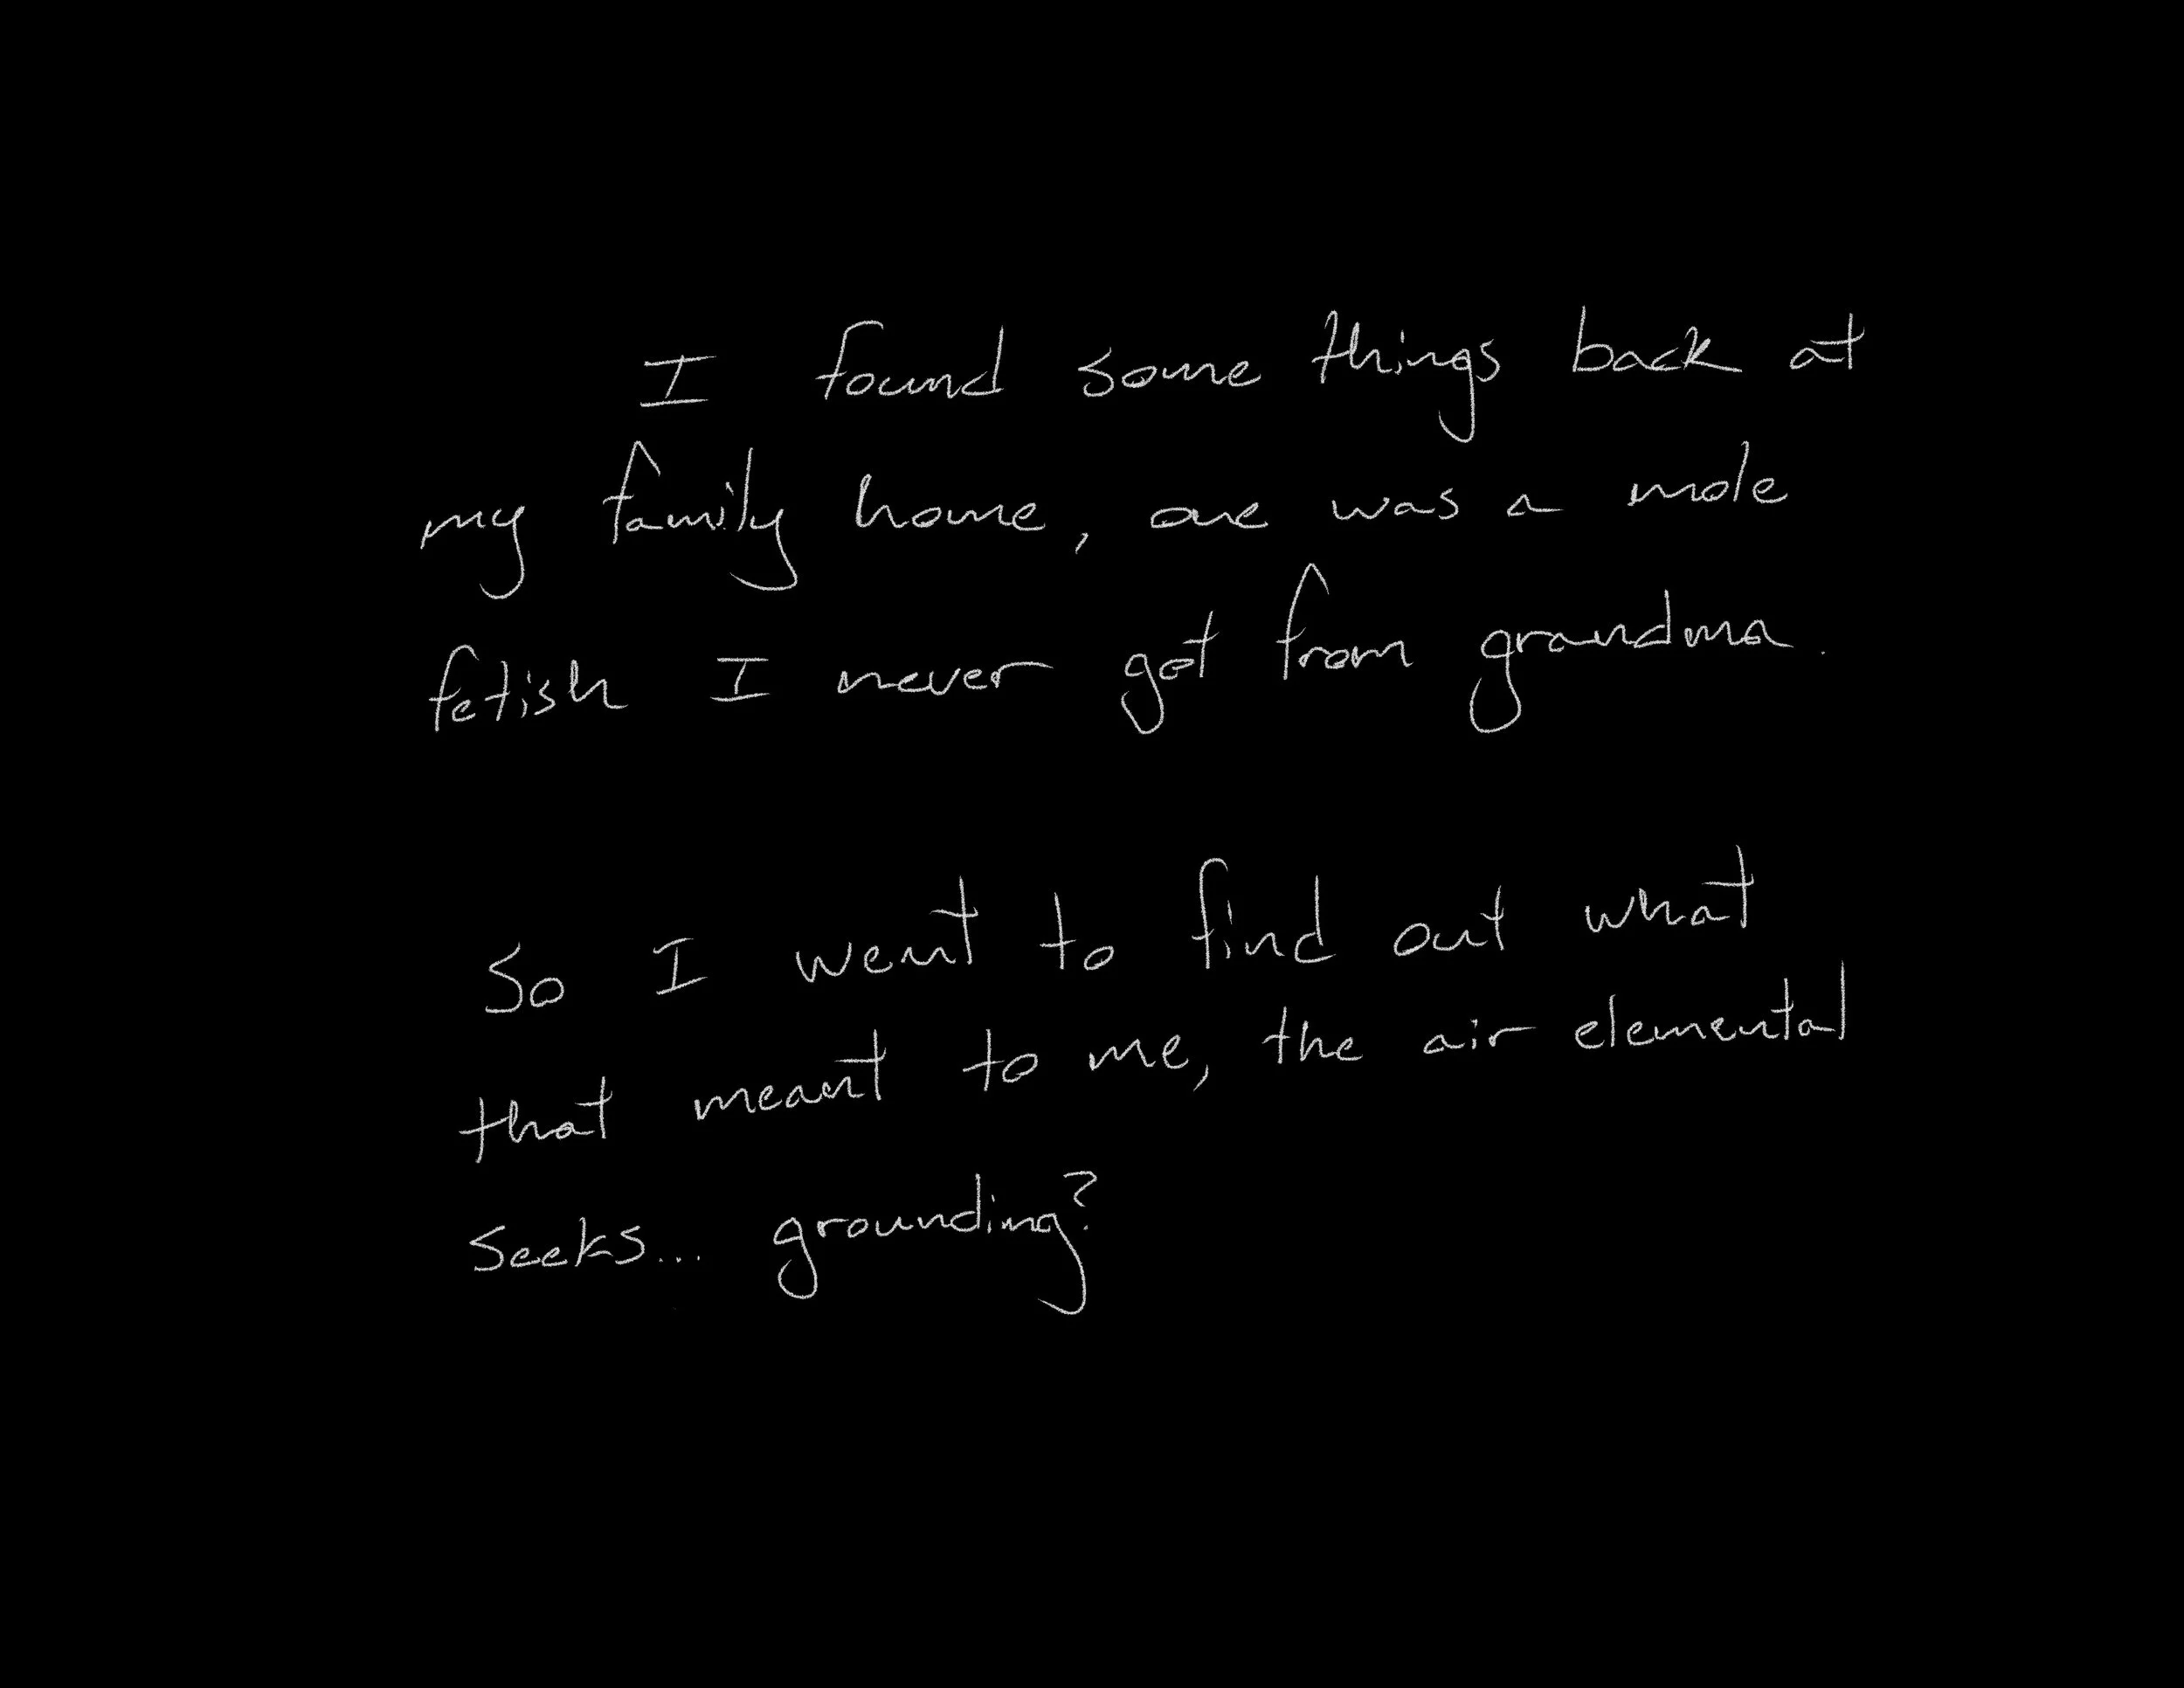 I found some things back at
my family home, one was a mole
fetish I never got from grandma.
So I went to find out what
that meant to me, the air elemental
seeks... grounding?